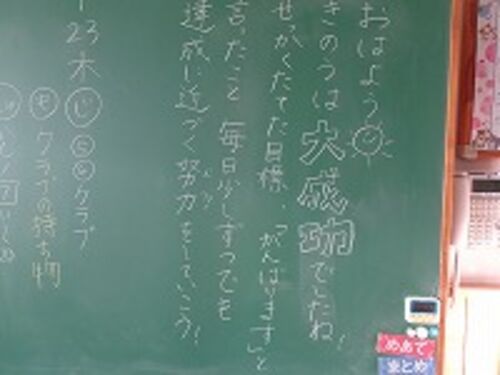 おはよう
きのうは大成功でしたね!
せっかくたてた目標、「がんばります」と
言ったこと 毎日少しずつでも
達成に近づく努力をしていこう!
23
木
じ ⑤⑥クラブ
も クラブの持ち物
めあて
まとめ